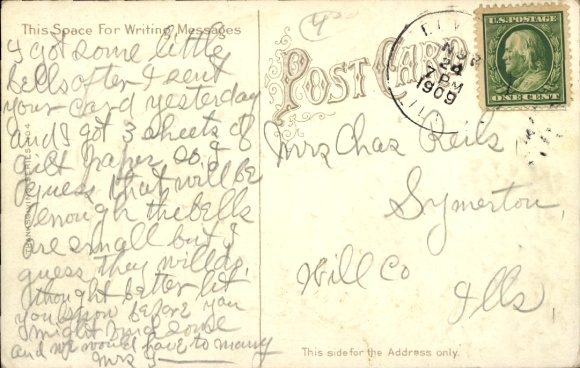 This Space For Writing Messages
I got some little
bells after I sent
your card yesterday
and I got 3 sheets of
gilt paper, so I
guess that will be
enough the bells
are small but I
guess they will do,
thought better let
you know before you
might send some
and we would have to many
Mrs
POST CARD
7 PM
1909
U.S. POSTAGE
ONE CENT
Mrs Chas Keils
Symerton,
Will Co
Ills,
This side for the Address only.